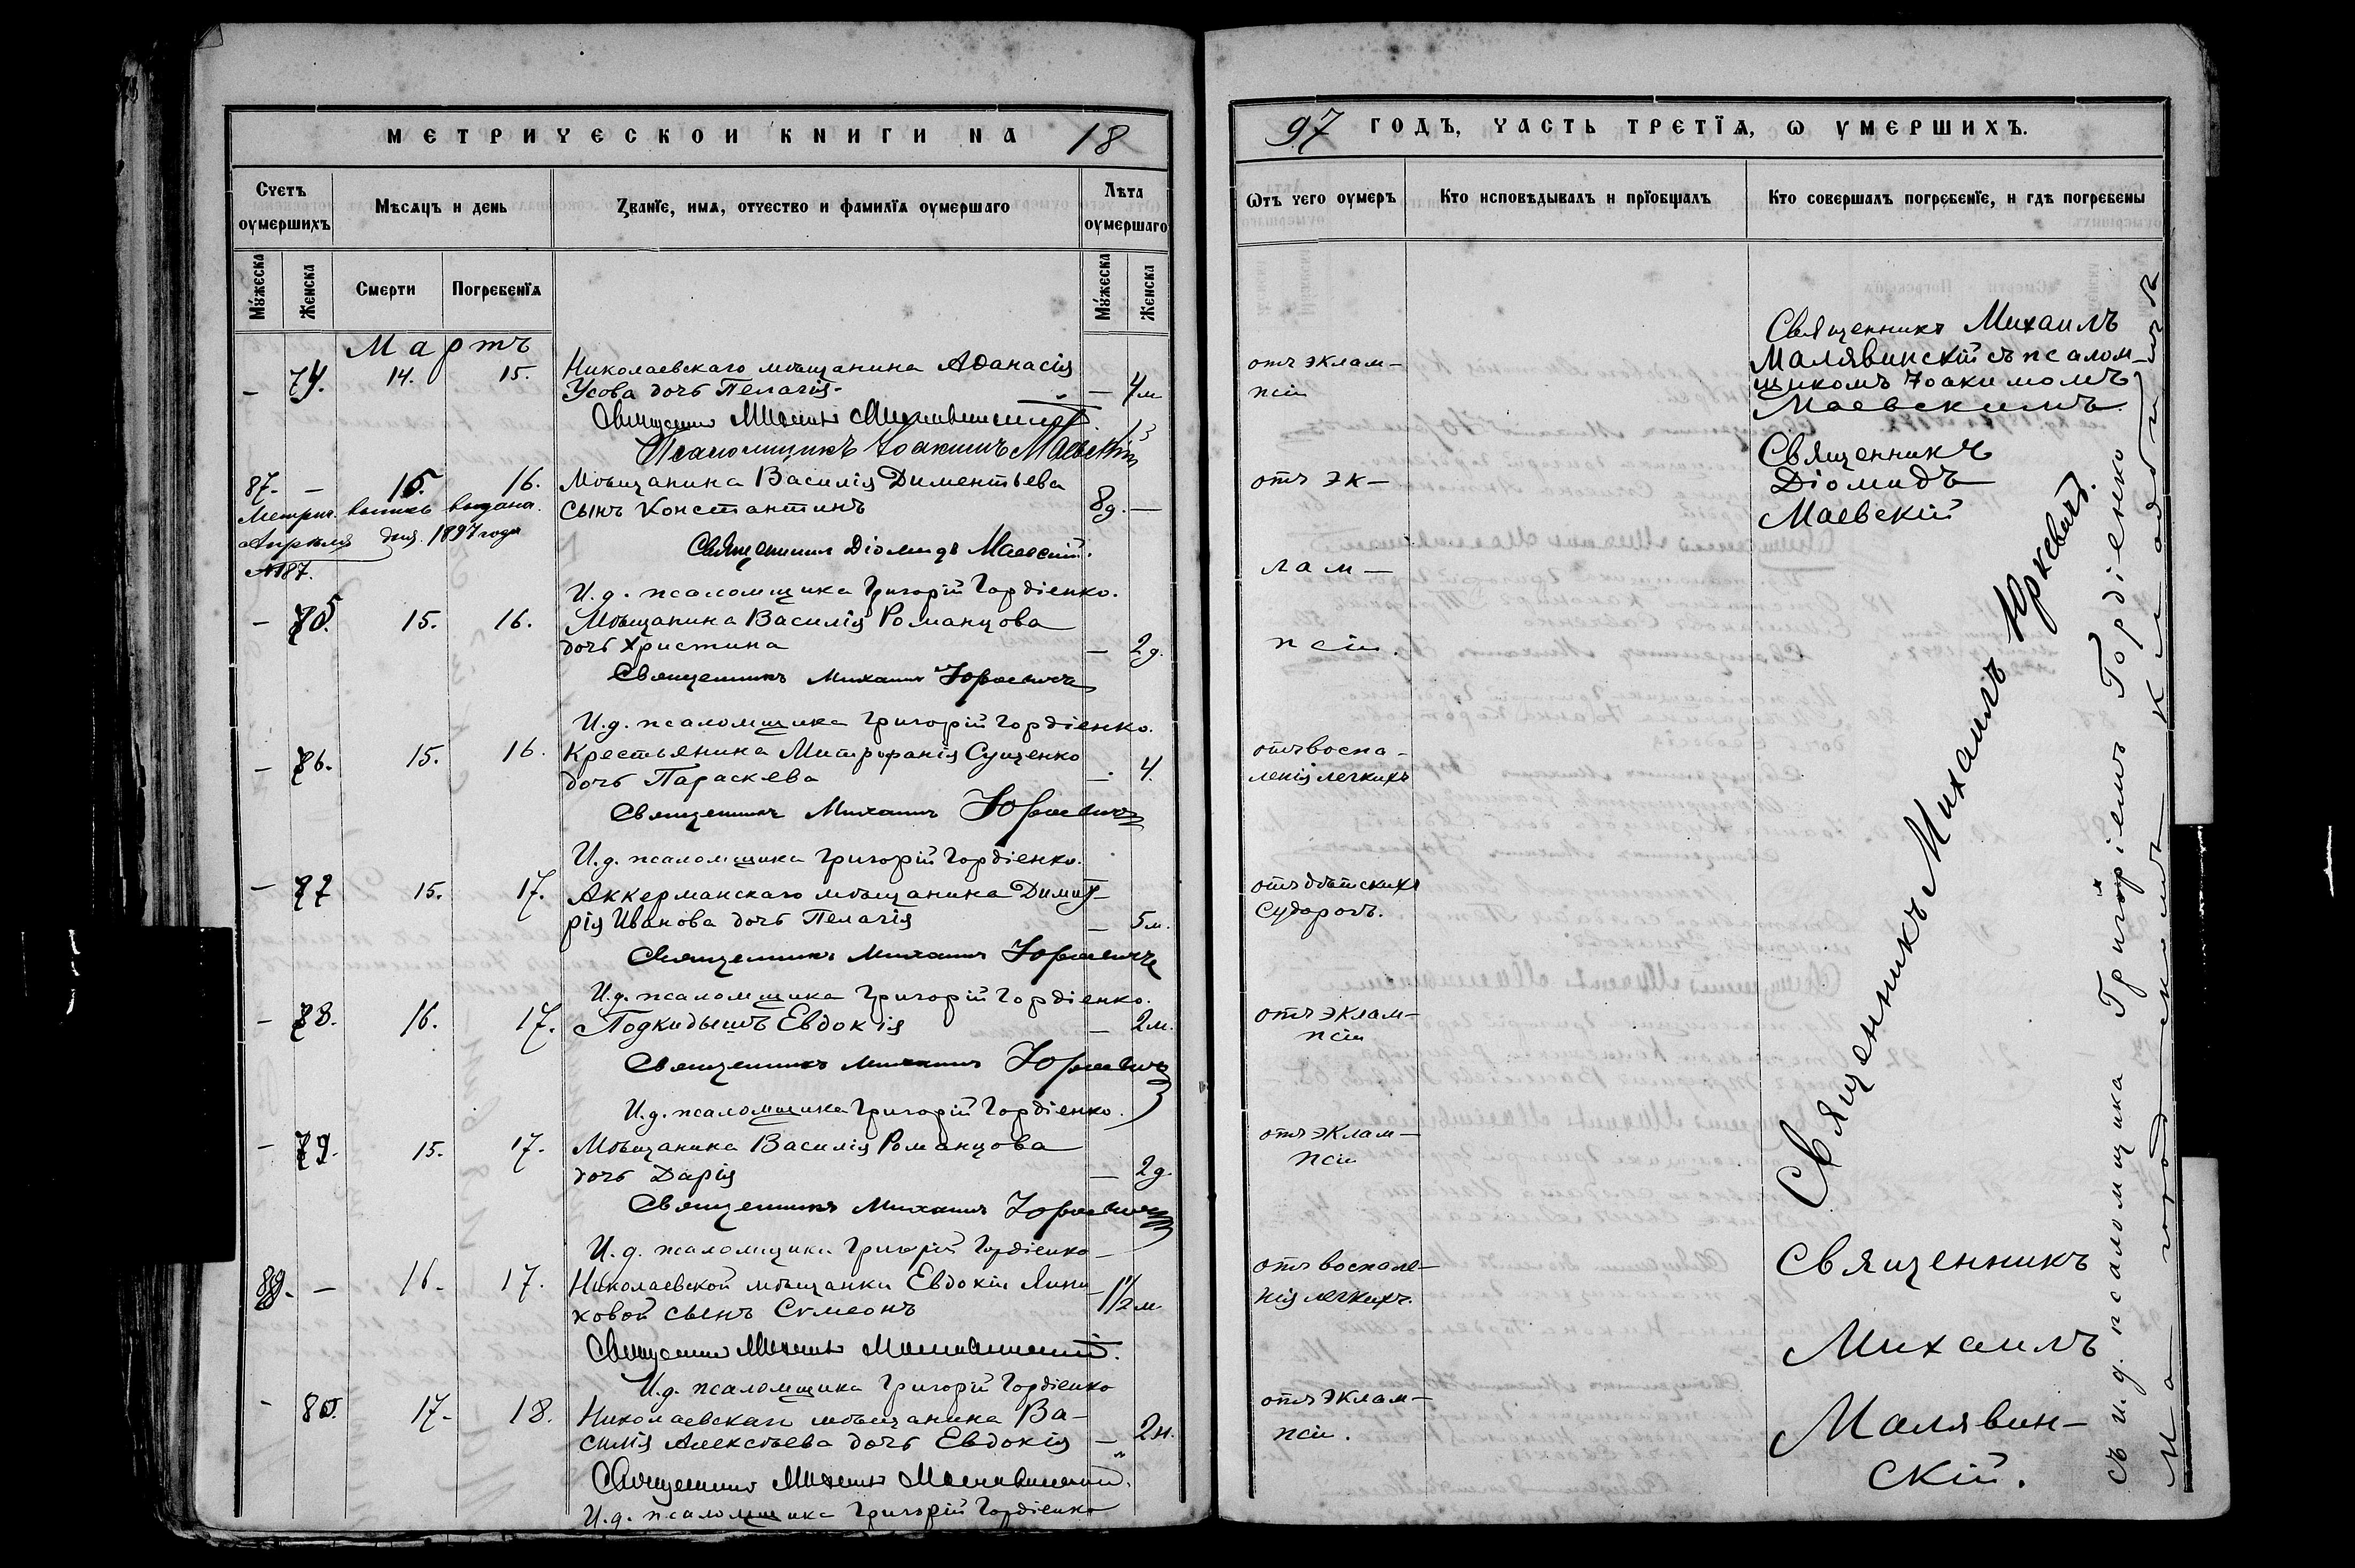 МЕТРИЧЕСКОЙ КНИГИ НА 18
Счетъ оумершихъ
Мѣсяцъ и день
Званїе, имя, отчество и фамилїя оумершаго
Лѣта оумершаго
Мужеска
Женска
Смерти
Погребенїя
Мужеска
Женска
Мартъ
— 74. 14. 15. Николаевскаго мѣщанина Аѳанасія
Усова дочь Пелагія — 4м
Священникъ Михаилъ Малявинскій
Псаломщикъ Іоакимъ Маевскій
87. — 15. 16. Мѣщанина Василія Дементьева
сынъ Константинъ 8д. —
Метрич. выпись выдана.
Апрѣля дня 1897 года
№187.
Священникъ Діомидъ Маевскій.
И.д. псаломщика Григорій Гордіенко.
— 75. 15. 16. Мѣщанина Василія Романцова
дочь Христина — 2д.
Священникъ Михаилъ Юркевичъ
И.д. псаломщика Григорій Гордіенко.
— 76. 15. 16. Крестьянина Митрофанія Сущенко
дочь Параскева — 4.
Священникъ Михаилъ Юркевичъ
И.д. псаломщика Григорій Гордіенко.
— 77 15. 17. Аккерманскаго мѣщанина Димит-
рія Иванова дочь Пелагія — 5м.
Священникъ Михаилъ Юркевичъ
И.д. псаломщика Григорій Гордіенко.
— 78. 16. 17. Подкидышъ Евдокія — 2м.
Священникъ Михаилъ Юркевичъ
И.д. псаломщика Григорій Гордіенко.
— 79. 15. 17. Мѣщанина Василія Романцова
дочь Дарія — 2д.
Священникъ Михаилъ Юркевичъ
И.д. псаломщика Григорій Гордіенко
— 16. 17. Николаевской мѣщанки Евдокіи
ковой сынъ Сѵмеонъ 1½м
Священникъ Михаилъ Малявинскій.
И.д. псаломщика Григорій Гордіенко
- 80. 17. 18. Николаевскаго мѣщанина Ва-
силія Алексѣева дочь Евдокія — 2н.
Священникъ Михаилъ Малявинскій.
И.д. псаломщика Григорій Гордіенко
97 ГОДЪ, ЧАСТЬ ТРЕТЇЯ, Ѡ УМЕРШИХЪ.
Ѿтъ чего оумеръ
Кто исповѣдывалъ и прїобщалъ
Кто совершалъ погребенїе, и гдѣ погребены
отъ эклам-
псіи
Священникъ Михаилъ
Малявинскій съ псалом-
щикомъ Іоакимомъ
Маевскимъ.
отъ эк-
лам-
псіи.
Священникъ
Діомидъ
Маевскій
отъ воспа-
ленія легкихъ
отъ дѣтскихъ
судорогъ.
отъ эклам-
псіи
отъ эклам-
псіи
Священникъ Михаилъ Юркевичъ.
отъ воспале-
нія легкихъ.
отъ эклам-
псіи.
Священникъ
Михаилъ
Малявин-
скій.
съ и.д. псаломщика Григоріемъ Гордіенко
На городскомъ кладбищѣ